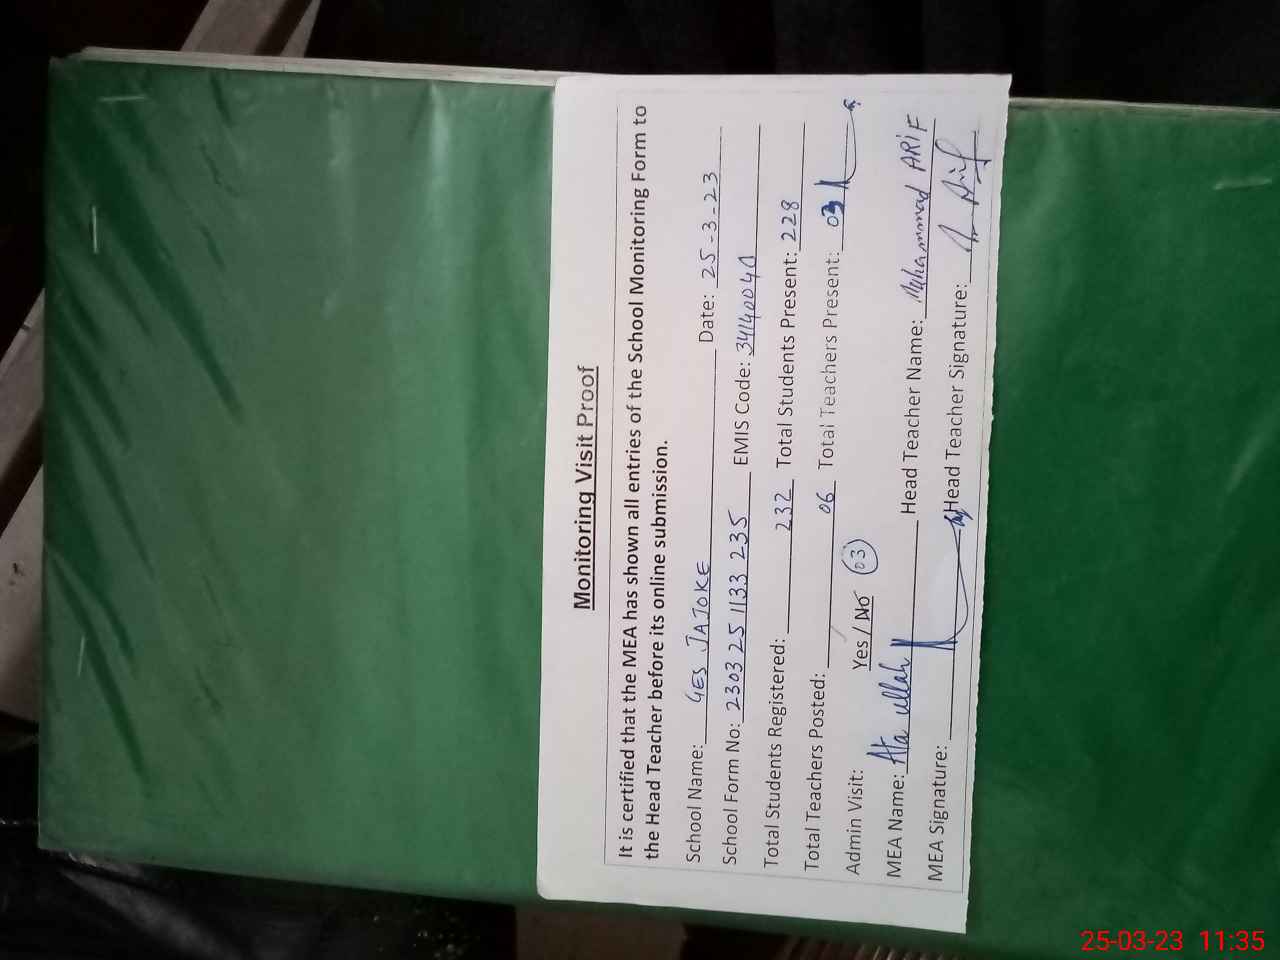 Monitoring Visit Proof
It is certified that the MEA has shown all entries of the School Monitoring Form to
the Head Teacher before its online submission.
School Name: GES JAJOKE Date: 25-3-23
School Form No: 2303 25 1133 235 EMIS Code: 34140040
Total Students Registered: 232 Total Students Present: 228
Total Teachers Posted: 06 Total Teachers Present: 03
Admin Visit: Yes / No 03
MEA Name: Ata ullah Head Teacher Name: Muhammad ARIF
MEA Signature: Head Teacher Signature:
25-03-23 11:35